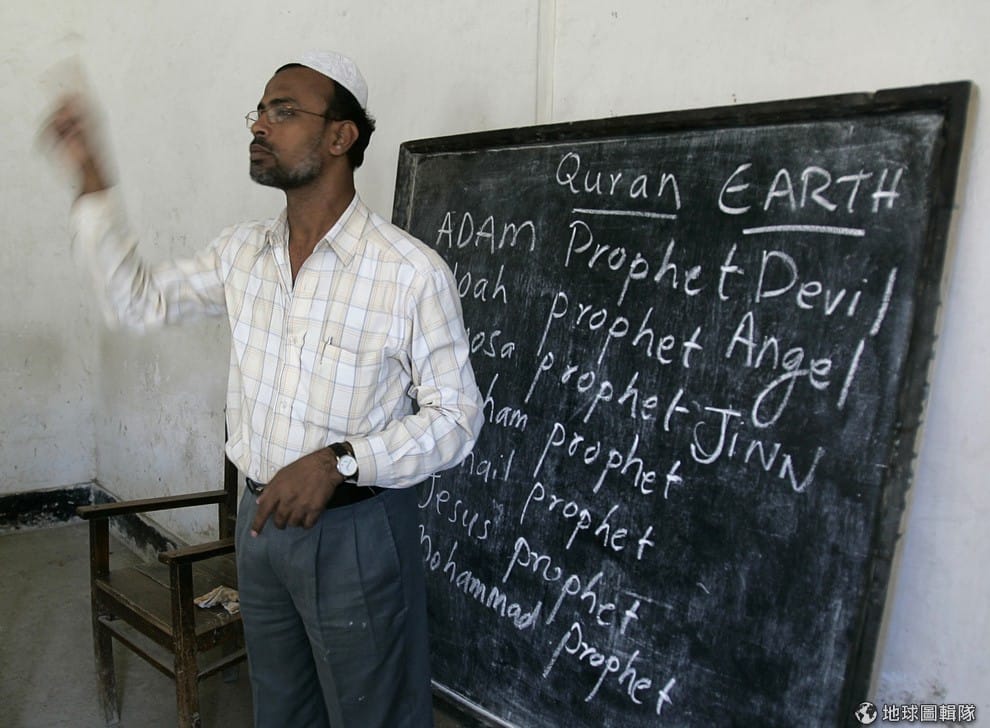 Quran EARTH
ADAM Prophet Devil
Noah prophet Angel
osa prophet JINN
ham prophet
ail prophet
Jesus prophet
Mohammad prophet
地球圖輯隊